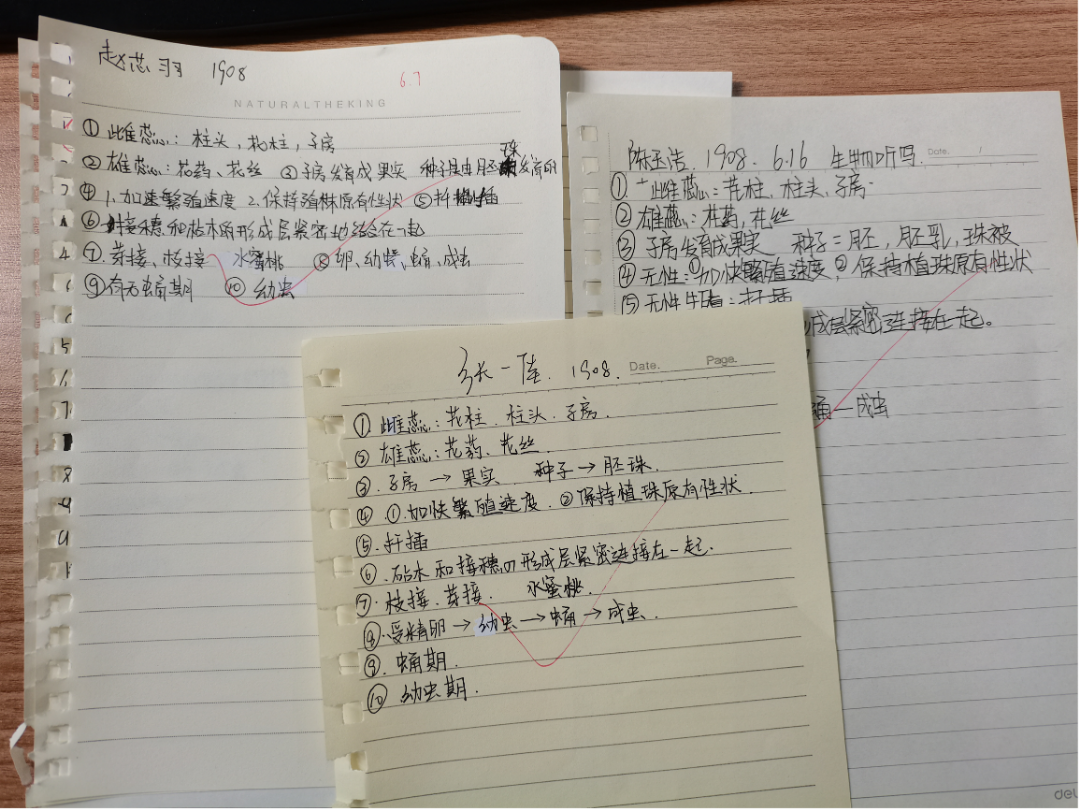 赵芯羽 1908
6.7
NATURALTHEKING
① 雌蕊：柱头，花柱，子房
② 雄蕊：花药、花丝 ③ 子房发育成果实 种子是由胚珠发育
④ 1.加速繁殖速度 2.保持殖株原有性状 ⑤ 扦插
⑥ 接穗和砧木的形成层紧密地结合在一起
⑦ 芽接、枝接 水蜜桃 ⑧ 卵、幼虫、蛹、成虫
⑨ 有无蛹期 ⑩ 幼虫
陈玉浩 1908 6.16 生物听写 Date.
① 雌蕊：花柱、柱头、子房.
② 雄蕊：花药，花丝
③ 子房发育成果实 种子=胚，胚乳，珠被
④ 无性：①加快繁殖速度 ② 保持植珠原有性状
⑤ 无性生殖：扦插
成层紧密连接在一起。
蛹—成虫
张一佳. 1908. Date. Page.
① 雌蕊：花柱. 柱头. 子房.
② 雄蕊：花药、花丝.
③. 子房 → 果实 种子 → 胚珠.
④ ①.加快繁殖速度. ②保持植珠原有性状.
⑤. 扦插
⑥. 砧木和接穗的形成层紧密连接在一起.
⑦. 枝接. 芽接. 水蜜桃.
⑧. 受精卵 → 幼虫 → 蛹 → 成虫.
⑨. 蛹期.
⑩ 幼虫期.